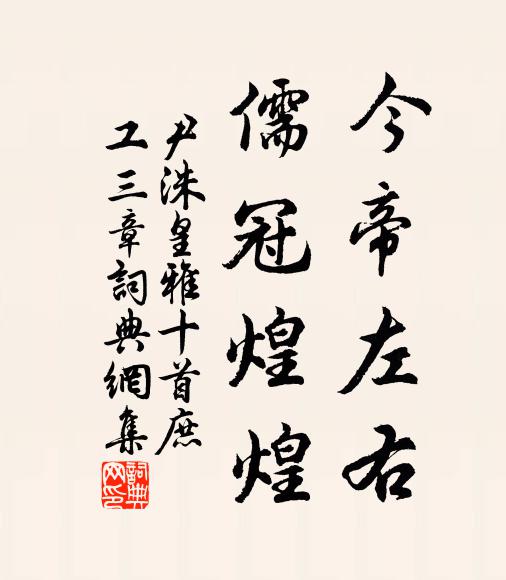 今帝左右
儒冠煌煌
尹洙皇雅十首庶
工三章詞典網集
詞典网印